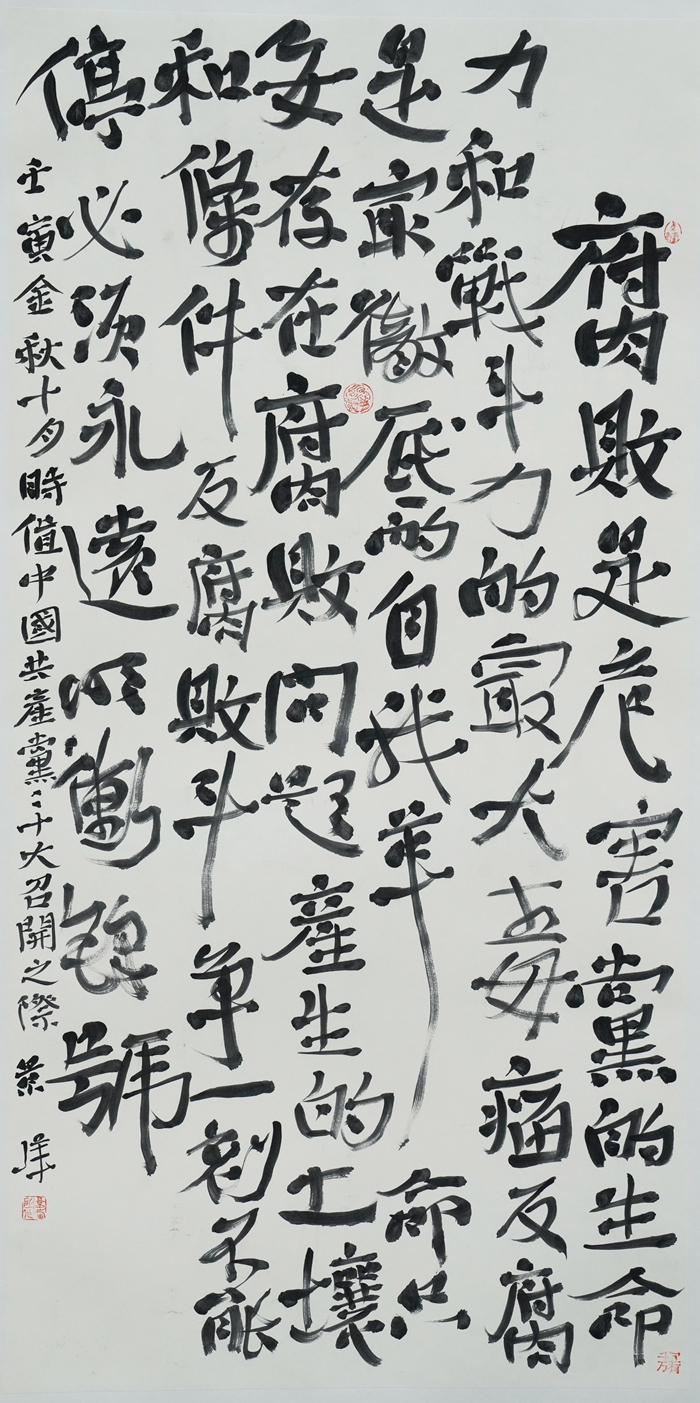 腐敗是危害黨的生命
力和戰斗力的最大毒瘤反腐
是最徹底的自我革命只
要存在腐敗問題產生的土壤
和條件反腐敗斗争一刻不能
停必須永遠吹衝鋒號
壬寅金秋十月時值中國共產黨二十大召開之際